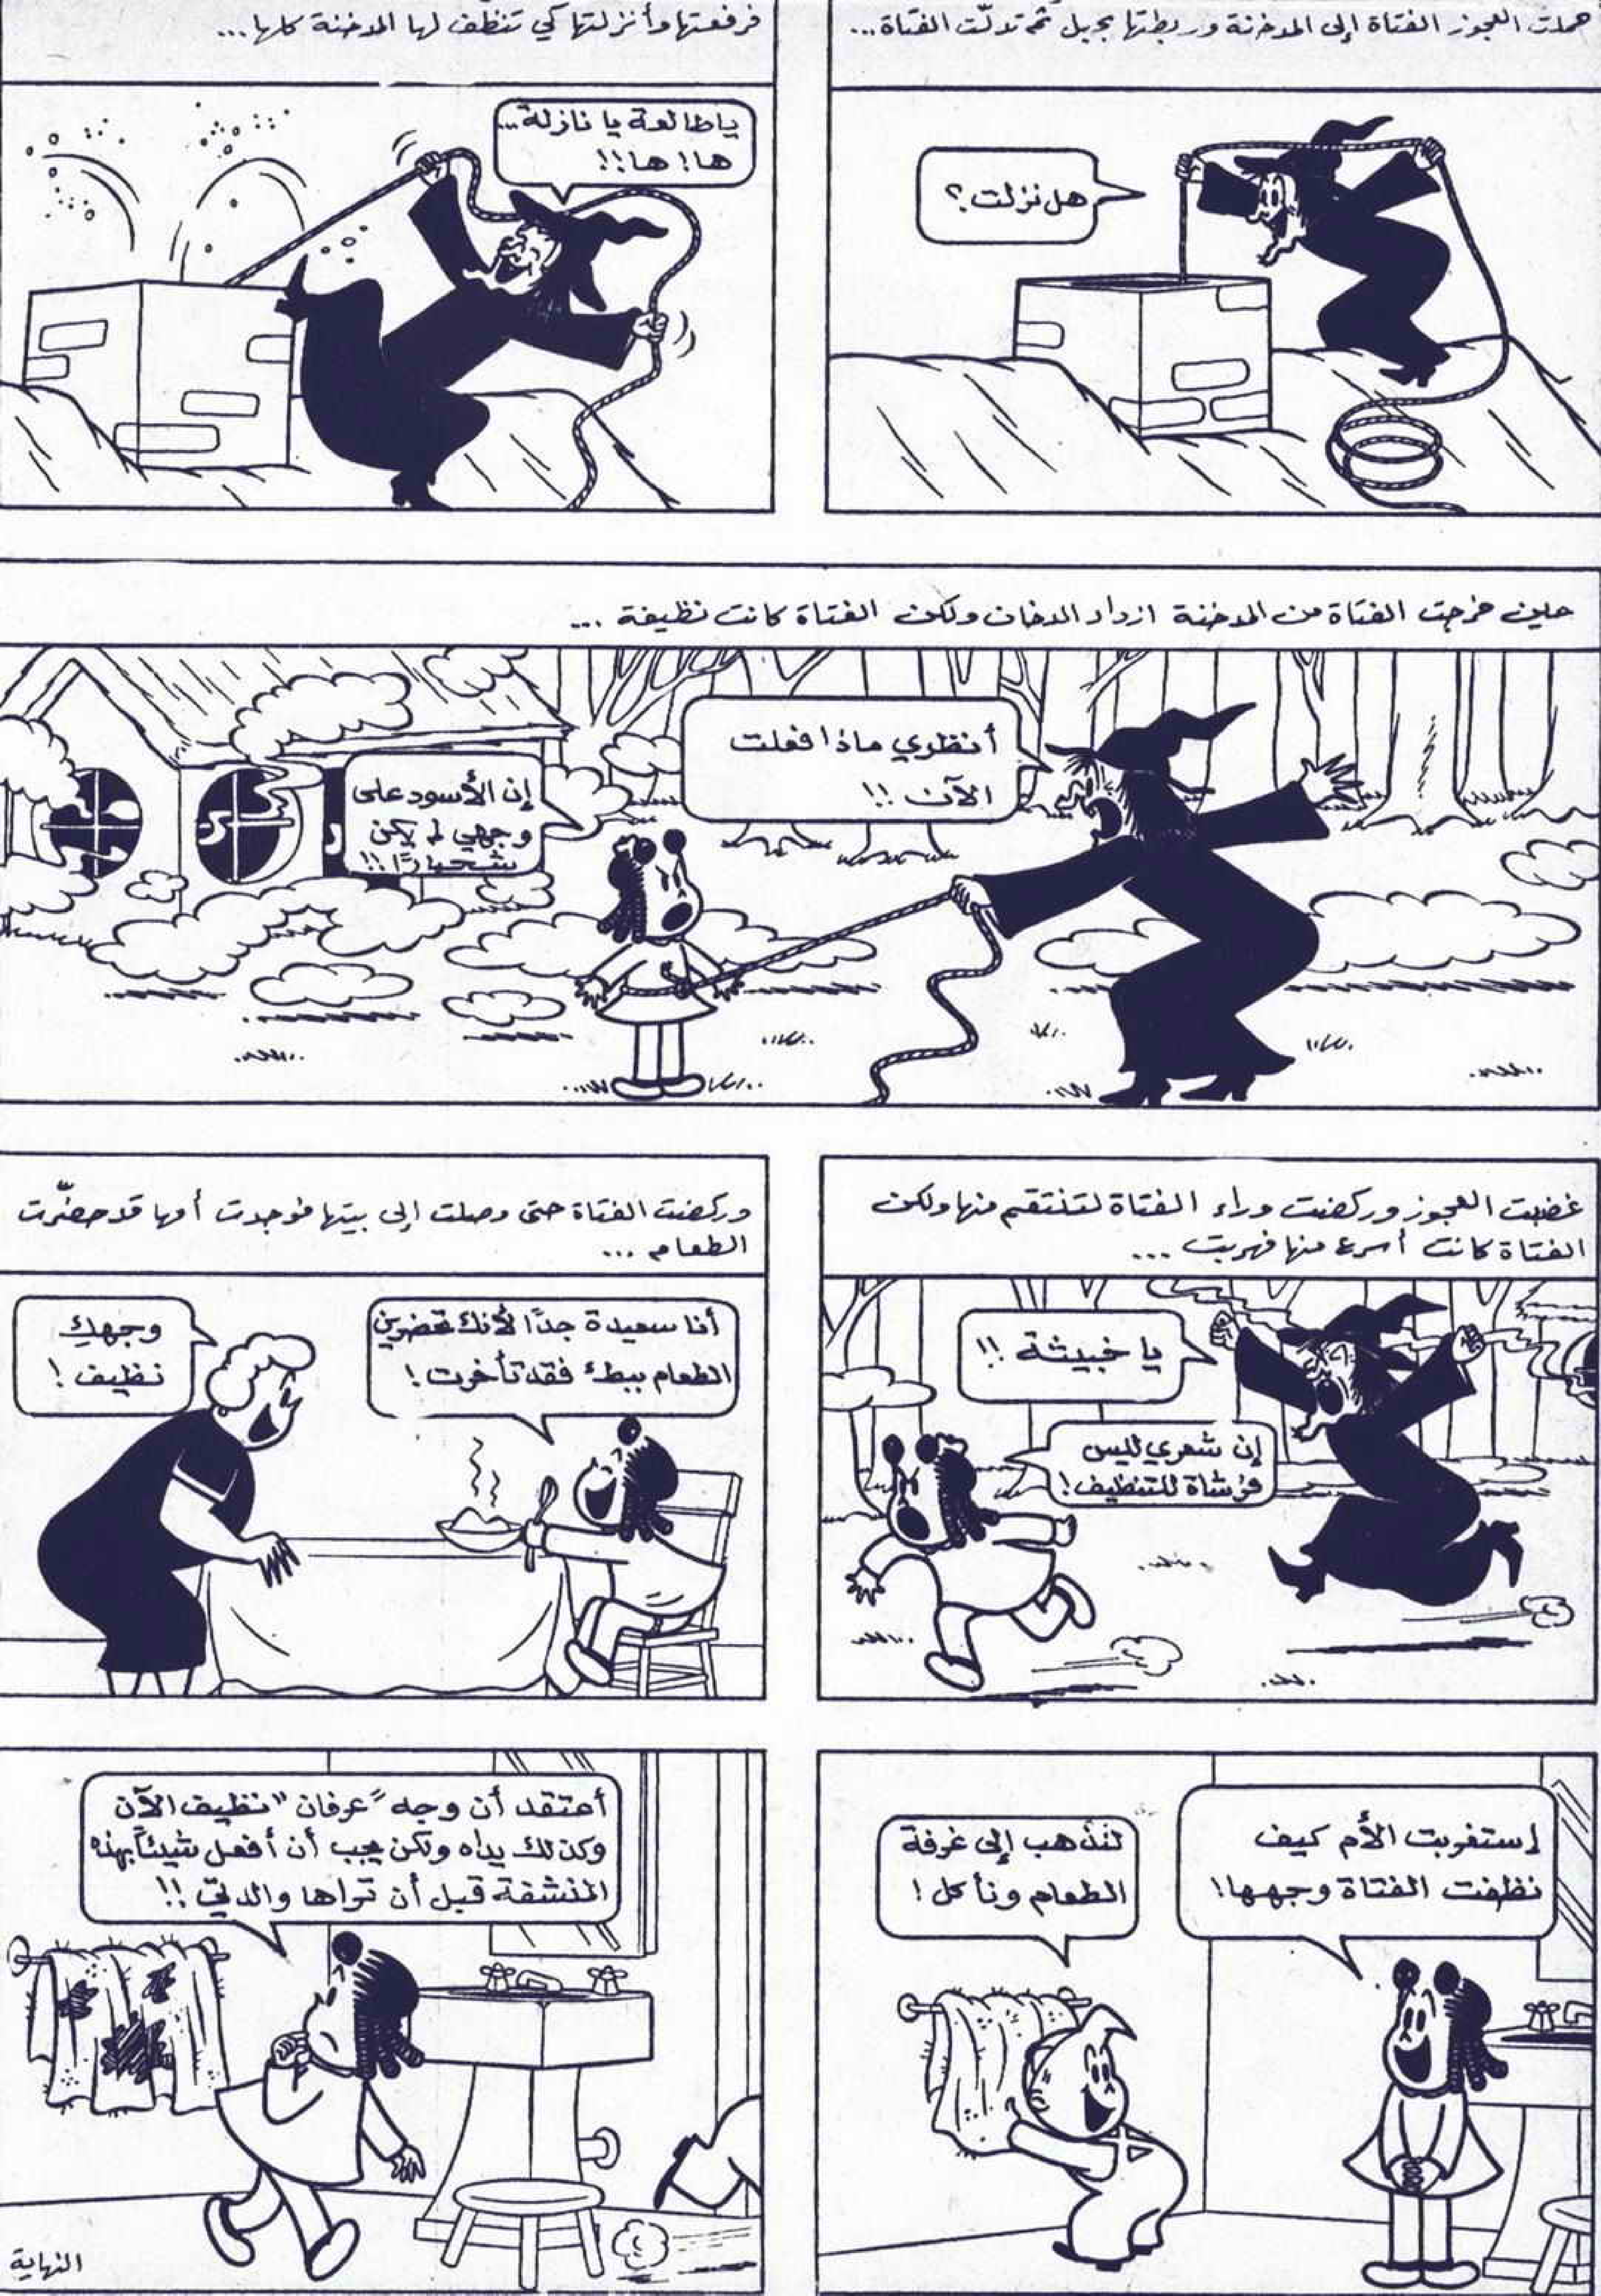 حملت العجوز الفتاة إلى المدخنة وربطتها بحبل ثم تدلّت الفتاة...
هل نزلت؟
فرفعتها وأنزلتها كي تنظف لها المدخنة كلها...
ياطالعة يا نازلة...
ها! ها!!
حين خرجت الفتاة من المدخنة ازداد الدخان ولكن الفتاة كانت نظيفة ...
أنظري ماذا فعلت
الآن !!
إن الأسود على
وجهي لم يكن
شحبارًا!!
غضبت العجوز وركضت وراء الفتاة لتنتقم منها ولكن
الفتاة كانت أسرع منها فهربت ...
يا خبيثة !!
إن شعري ليس
فرشاة للتنظيف!
وركضت الفتاة حتى وصلت إلى بيتها فوجدت أمها قد حضّرت
الطعام ...
أنا سعيدة جدًا لأنك تحضرين
الطعام ببطء فقد تأخرت!
وجهكِ
نظيف!
إستغربت الأم كيف
نظفت الفتاة وجهها!
لنذهب إلى غرفة
الطعام ونأكل!
أعتقد أن وجه "عرفان" نظيف الآن
وكذلك يداه ولكن يجب أن أفعل شيئاً بهذه
المنشفة قبل أن تراها والدتي!!
النهاية